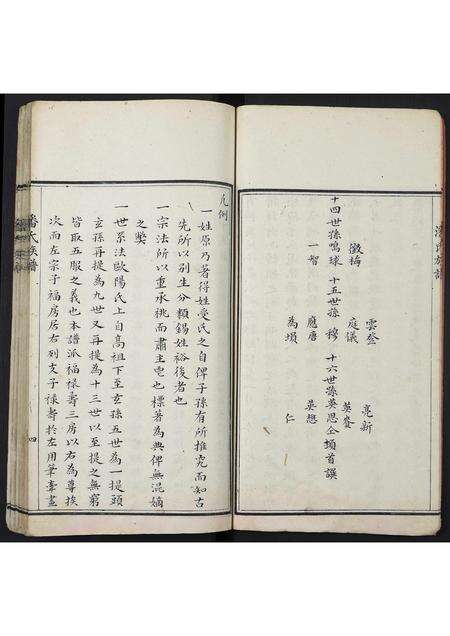 雲登 亮新
徵梅 庭儀 英賡
十四世孫鳴球 十五世孫 穆 十六世孫英恩仝頓首譔
一智 應唐 英想
為塤 仁
凡例
一姓原乃著得姓受氏之自俾子孫有所推究而知古
先所以別生分類錫姓裕後者也
一宗法所以重承祧而肅主鬯也標著為典俾無混嫡
之弊
一世系法歐陽氏上自高祖下至玄孫五世為一提頭
玄孫再提為九世又再提為十三世以至提之無窮
皆取五服之義也本譜派福祿壽三房以右為尊挨
次而左宗子福房居右列支子祿壽於左用筆牽畫
潘氏族譜
四